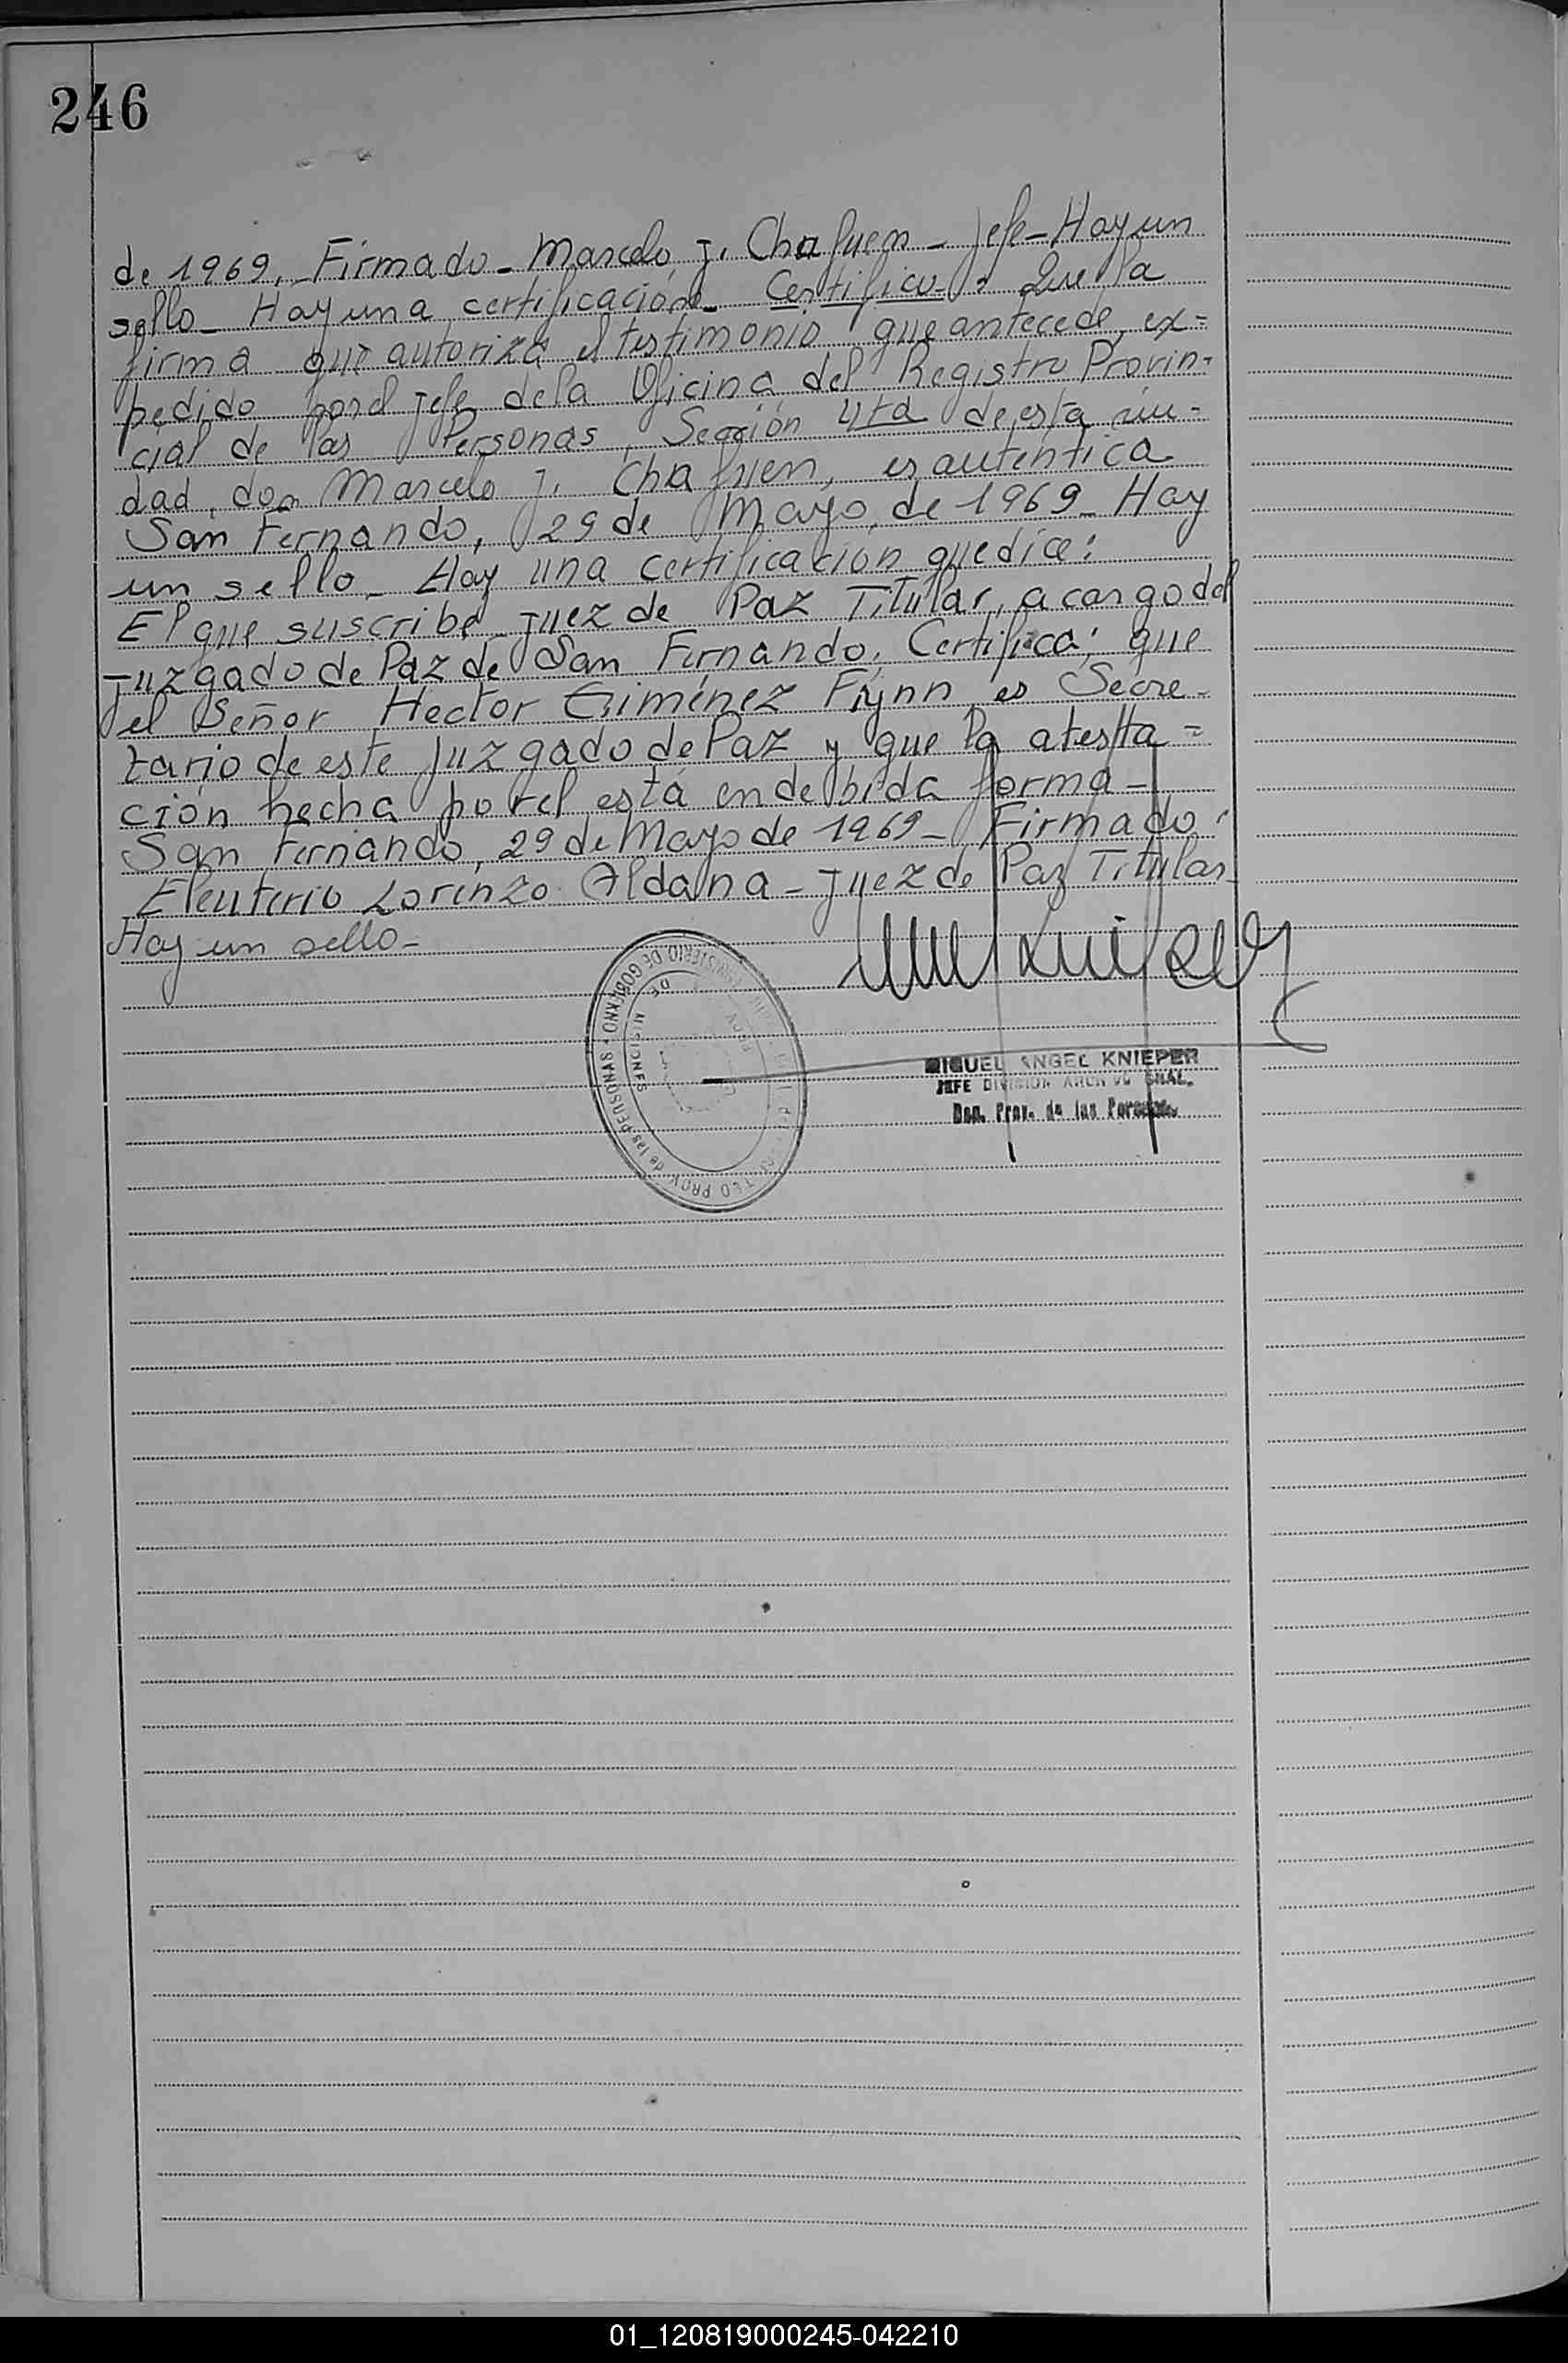 246
de 1969. Firmado - Marcelo J. Chafuen - Jefe - Hay un
sello - Hay una certificación - Certifico: Que la
firma que autoriza el testimonio que antecede, ex=
pedido por el Jefe de la Oficina del Registro Provin-
cial de las Personas, Sección de esta ciu-
dad, don Marcelo J. Chafuen, es autentica
San Fernando, 29 de Mayo de 1969 - Hay
un sello - Hay una certificación que dice:
El que suscribe Juez de Paz Titular, a cargo del
Juzgado de Paz de San Fernando, Certifica: que
el Señor Hector Giménez Flynn es Secre-
tario de este Juzgado de Paz y que la atesta=
ción hecha por el está en debida forma -
San Fernando, 29 de Mayo de 1969 - Firmado:
Eleuterio Lorenzo Aldana - Juez de Paz Titular -
Hay un sello -
MINISTERIO DE GOBIERNO
PROV. de las PERSONAS
DE MISIONES
MIGUEL ANGEL KNIEPER
JEFE DIVISION ARCHIVO GRAL.
Prov. de las Personas
01_120819000245-042210